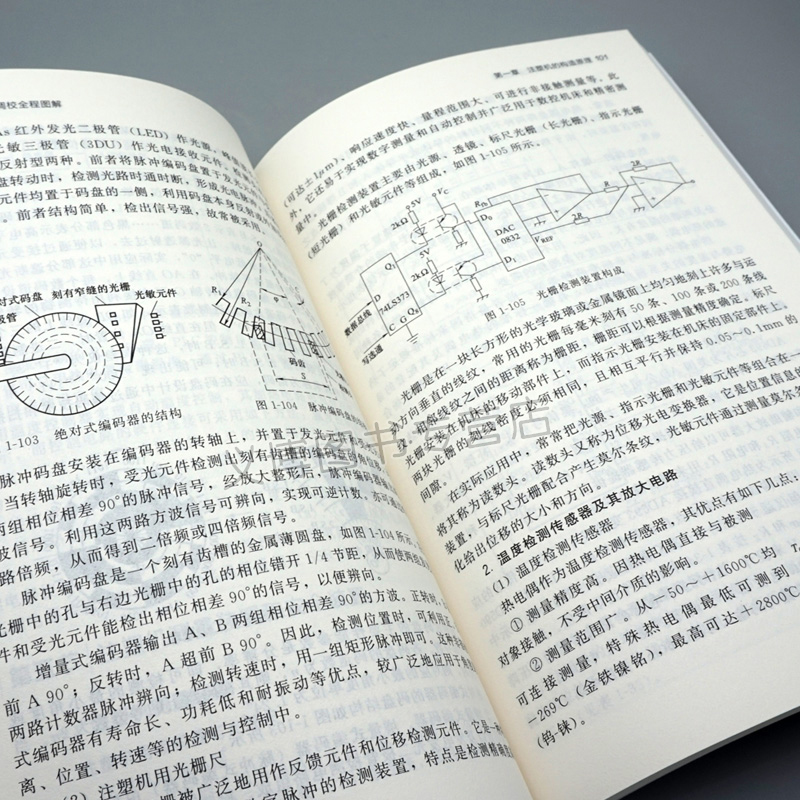 调校全程图解
As 红外发光二极管（LED）作光源，
光敏三极管（3DU）作光电接收元件，
反射型两种。前者将脉冲编码盘置于发光元
盘转动时，检测光路时通时断，形成光电脉
元件均置于码盘的一侧，利用码盘本身反射
。前者结构简单，检出信号强，故常被采用
对式码盘 刻有窄缝的光栅
极管
光敏元件
O
R₁
R₂
φ
码齿
S
1-103 绝对式编码器的结构
图 1-104 脉冲编码盘
脉冲码盘安装在编码器的转轴上，并置于发光元
当转轴旋转时，受光元件检测出刻有齿槽的编码盘的
两组相位相差 90°的脉冲信号，经放大整形后，脉冲编码
波信号。利用这两路方波信号可辨向，实现可逆计数，亦可
路倍频，从而得到二倍频或四倍频信号。
脉冲编码盘是一个刻有齿槽的金属薄圆盘，如图 1-104 所
光栅中的孔与右边光栅中的孔的相位错开 1/4 节距，从而使两
件和受光元件能检出相位相差 90°的信号，以便辨向。
增量式编码器输出 A、B 两组相位相差 90°的方波。正转时，
前 A 90°；反转时，A 超前 B 90°。因此，检测位置时，可利用
两路计数器脉冲辨向；检测转速时，用一组矩形脉冲即可。这种
式编码器有寿命长、功耗低和耐振动等优点，较广泛地应用于角
离、位置、转速等的检测与控制中。
（3）注塑机用光栅尺
栅被广泛地用作反馈元件和位移检测元件。它是一种
字脉冲的检测装置，特点是检测精
第一章 注塑机的构造原理 101
（可达±1μm）、响应速度快、量程范围大、可进行非接触测量等，此
外，它还易于实现数字测量和自动控制并广泛用于数控机床和精密测
量中。
光栅检测装置主要由光源、透镜、标尺光栅（长光栅）、指示光栅
（短光栅）和光敏元件等组成，如图 1-105 所示。
5V
2kΩ
5V
2kΩ
Q₁
D
74LS373
C G Q₈
数据总线
写选通
D₀
DAC
0832
D₁
V_REF
R
2R
R
图 1-105 光栅检测装置构成
光栅是在一块长方形的光学玻璃或金属镜面上均匀地刻上许多与运
动方向垂直的线纹，常用的光栅每毫米刻有 50 条、100 条或 200 条线
纹，相邻线纹之间的距离称为栅距，栅距可以根据测量精度确定。标尺
光栅安装在机床的移动部件上，而指示光栅安装在机床的固定部件上，
两块光栅的线纹密度必须相同，且相互平行并保持 0.05～0.1mm 的
间隙。
在实际应用中，常常把光源、指示光栅和光敏元件等组合在一
将其称为读数头。读数头又称为位移光电变换器，它是位置信息的
装置，与标尺光栅配合产生莫尔条纹，光敏元件通过测量莫尔条
化给出位移的大小和方向。
2. 温度检测传感器及其放大电路
（1）温度检测传感器
热电偶作为温度检测传感器，其优点有如下几点：
① 测量精度高。因热电偶直接与被测
对象接触，不受中间介质的影响。
② 测量范围广。从－50～＋1600℃均
可连接测量，特殊热电偶最低可测到
－269℃（金铁镍铭），最高可达＋2800℃
（钨-铼）。
图书专营店